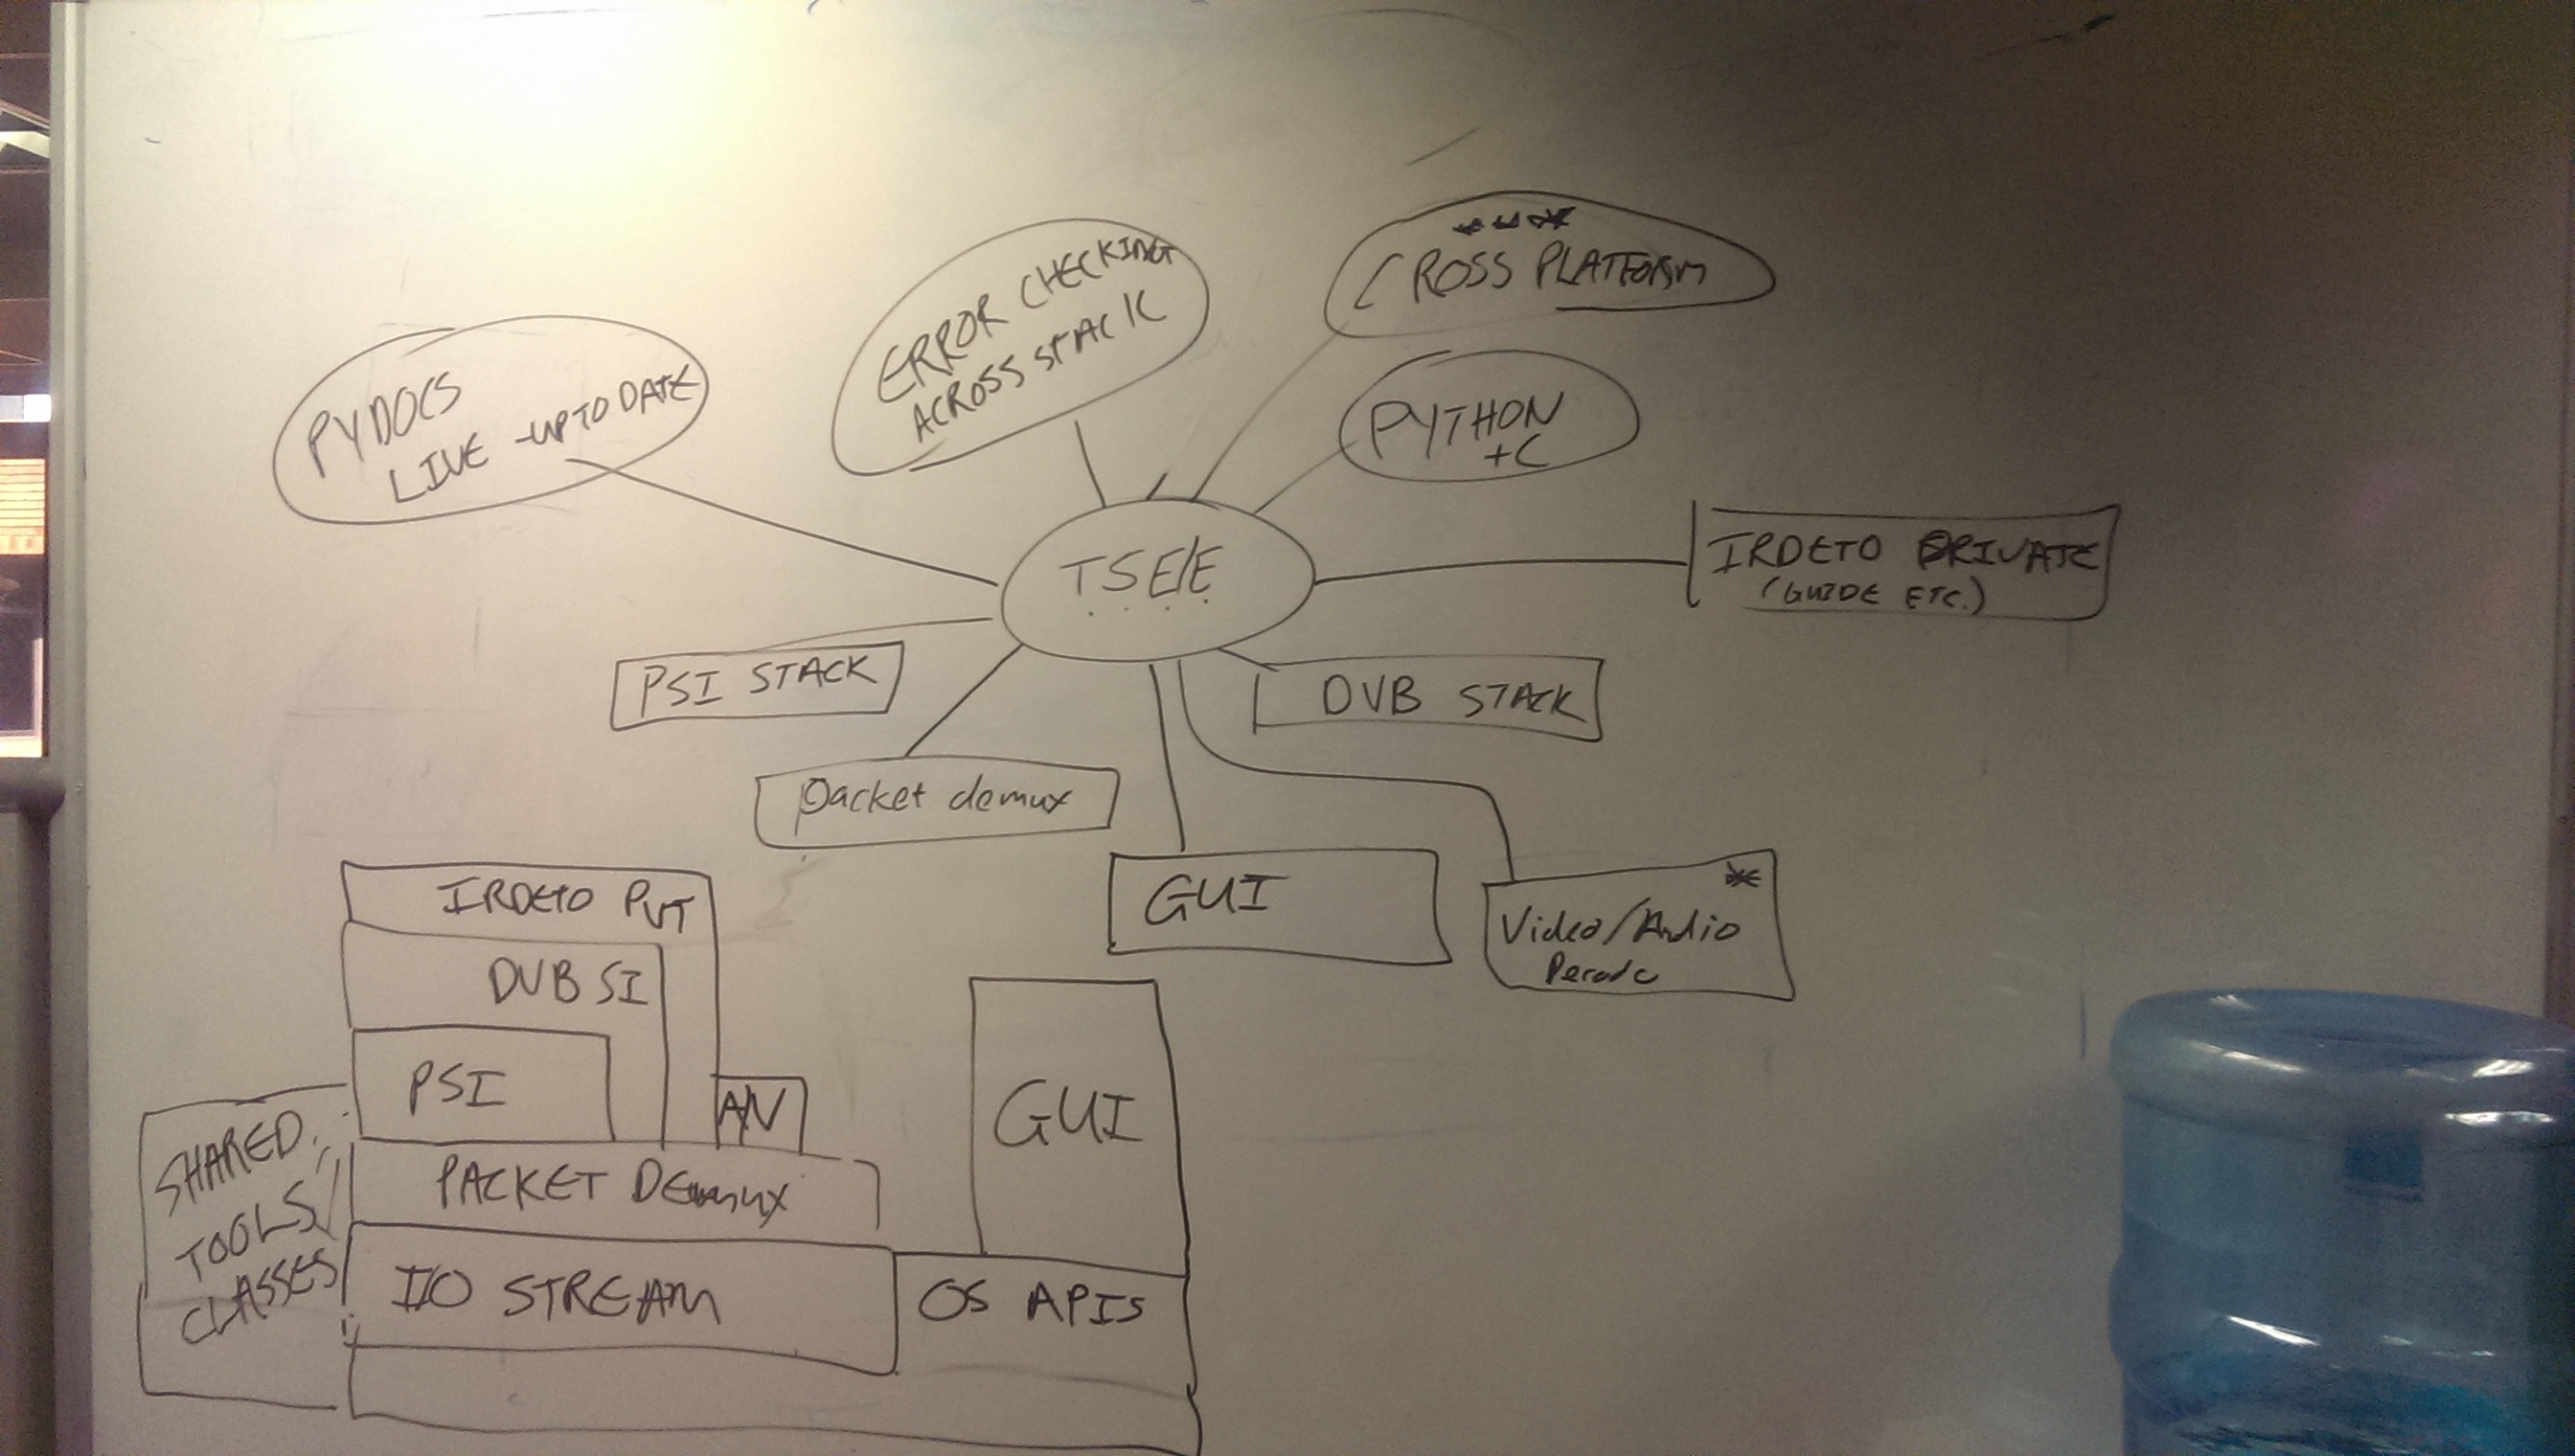 *** 
CROSS PLATFORM
ERROR CHECKING
ACROSS STACK
PYDOCS
LIVE -UP TO DATE
PYTHON
+C
TSE/E
IRDETO PRIVATE
(GUIDE ETC.)
PSI STACK
DVB STACK
packet demux
GUI
*
Video/Audio
IRDETO PVT
DVB SI
PSI
A/V
GUI
SHARED
TOOLS/
CLASSES
PACKET DEMUX
I/O STREAM
OS APIS